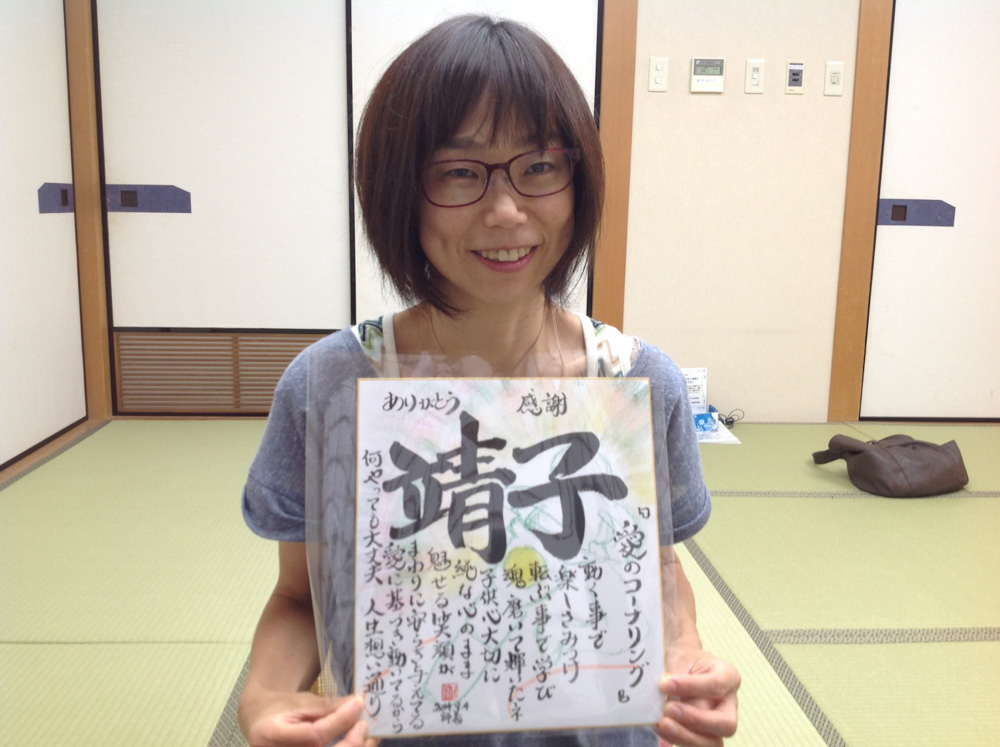 ありがとう 感謝
靖子
愛のコーナリング
動く事で
楽しさみつけ
転ぶ事で学び
魂磨いて輝いたネ
子供心大切に
純な心のまま
魅せる笑顔が
まわりに安らぎ与えてる
愛に基づき動いてるから
何やっても大丈夫 人生想い通り